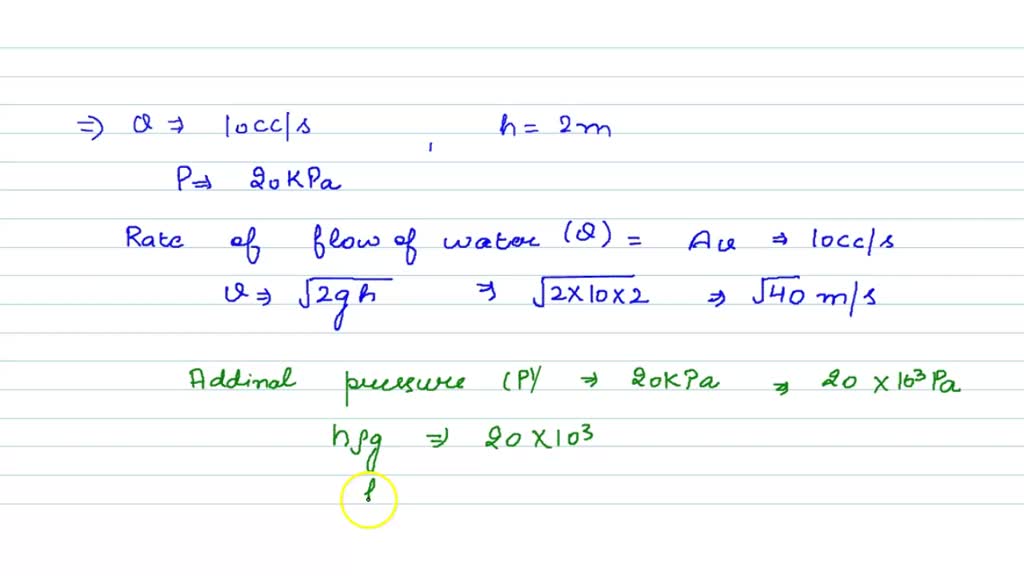 ⇒ Q ⇒ 10cc/s , h = 2m
P ⇒ 20KPa
Rate of flow of water (Q) = Av ⇒ 10cc/s
v ⇒ √2gh ⇒ √2×10×2 ⇒ √40 m/s
Addinal pressure (P) ⇒ 20KPa ⇒ 20 × 10³ Pa
hρg ⇒ 20 × 10³